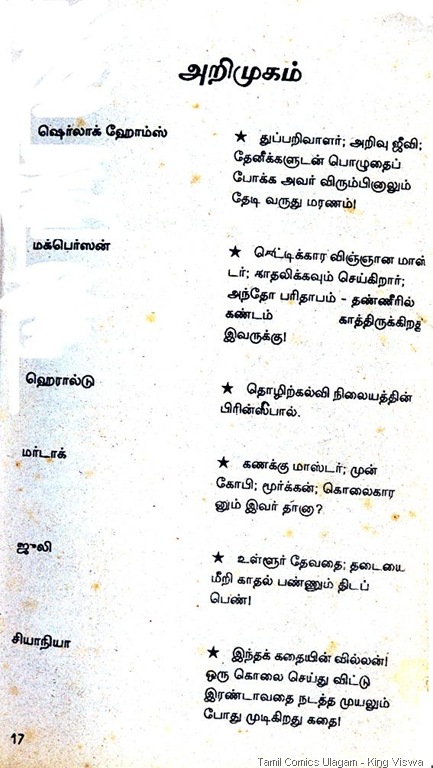 அறிமுகம்
ஷெர்லாக் ஹோம்ஸ்
★ துப்பறிவாளர்; அறிவு ஜீவி;
தேனீக்களுடன் பொழுதைப்
போக்க அவர் விரும்பினாலும்
தேடி வருது மரணம்!
மக்பெர்ஸன்
★ கெட்டிக்கார விஞ்ஞான மாஸ்
டர்; காதலிக்கவும் செய்கிறார்;
அந்தோ பரிதாபம் - தண்ணீரில்
கண்டம் காத்திருக்கிறது
இவருக்கு!
ஹெரால்டு
★ தொழிற்கல்வி நிலையத்தின்
பிரின்ஸீபால்.
மர்டாக்
★ கணக்கு மாஸ்டர்; முன்
கோபி; மூர்க்கன்; கொலைகார
னும் இவர் தானா?
ஜுலி
★ உள்ளூர் தேவதை; தடையை
மீறி காதல் பண்ணும் திடப்
பெண்!
சியானியா
★ இந்தக் கதையின் வில்லன்!
ஒரு கொலை செய்து விட்டு
இரண்டாவதை நடத்த முயலும்
போது முடிகிறது கதை!
17
Tamil Comics Ulagam - King Viswa